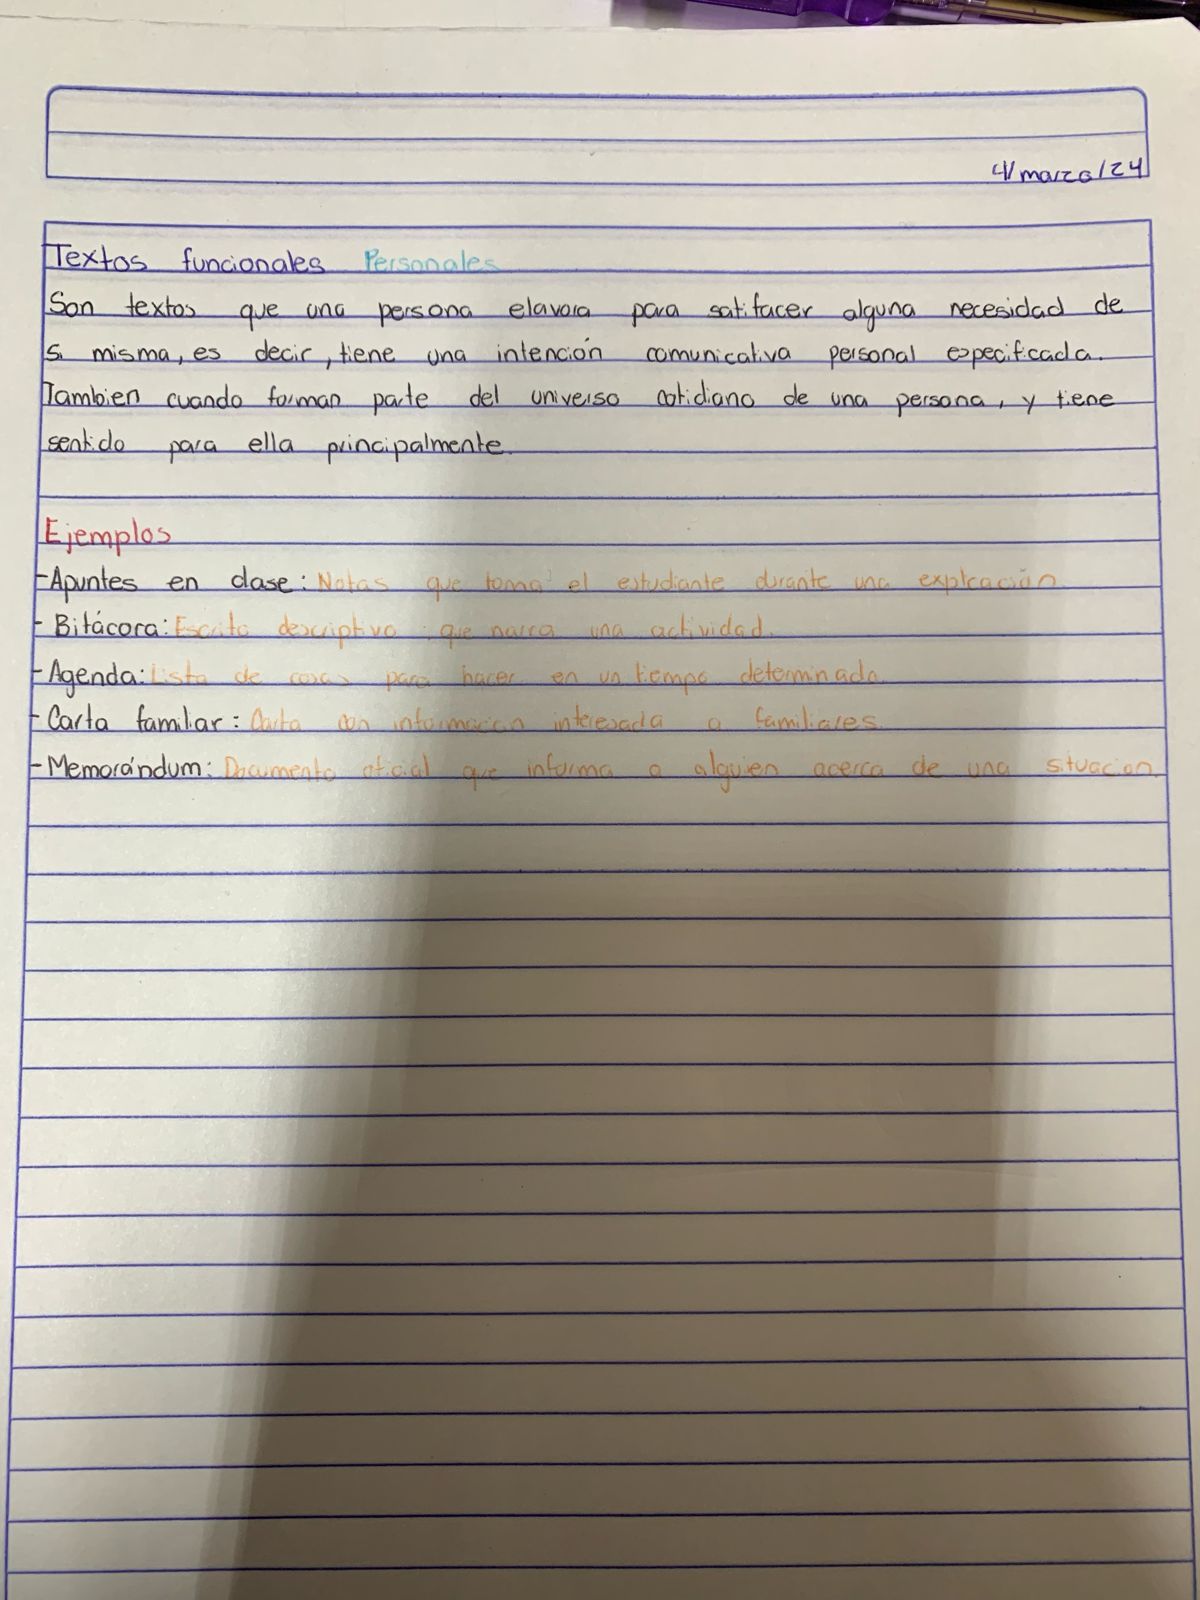 4/marzo/24
Textos funcionales Personales
Son textos que una persona elavora para satifacer alguna necesidad de
si misma, es decir, tiene una intención comunicativa personal especificada.
Tambien cuando forman parte del universo cotidiano de una persona, y tiene
sentido para ella principalmente.
Ejemplos
-Apuntes en clase: Notas que toma el estudiante durante una explicación.
- Bitácora: Escrito descriptivo que narra una actividad.
-Agenda: Lista de cosas para hacer en un tiempo determinado.
- Carta familiar: Carta con informacion interesada a familiares.
-Memorándum: Documento oficial que informa a alguien acerca de una situacion.